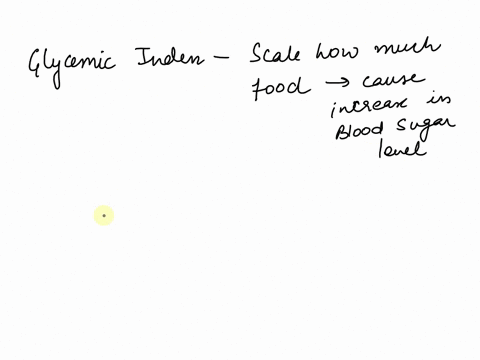 Glycemic Index - Scale how much
food → cause
increase in
Blood Sugar
level